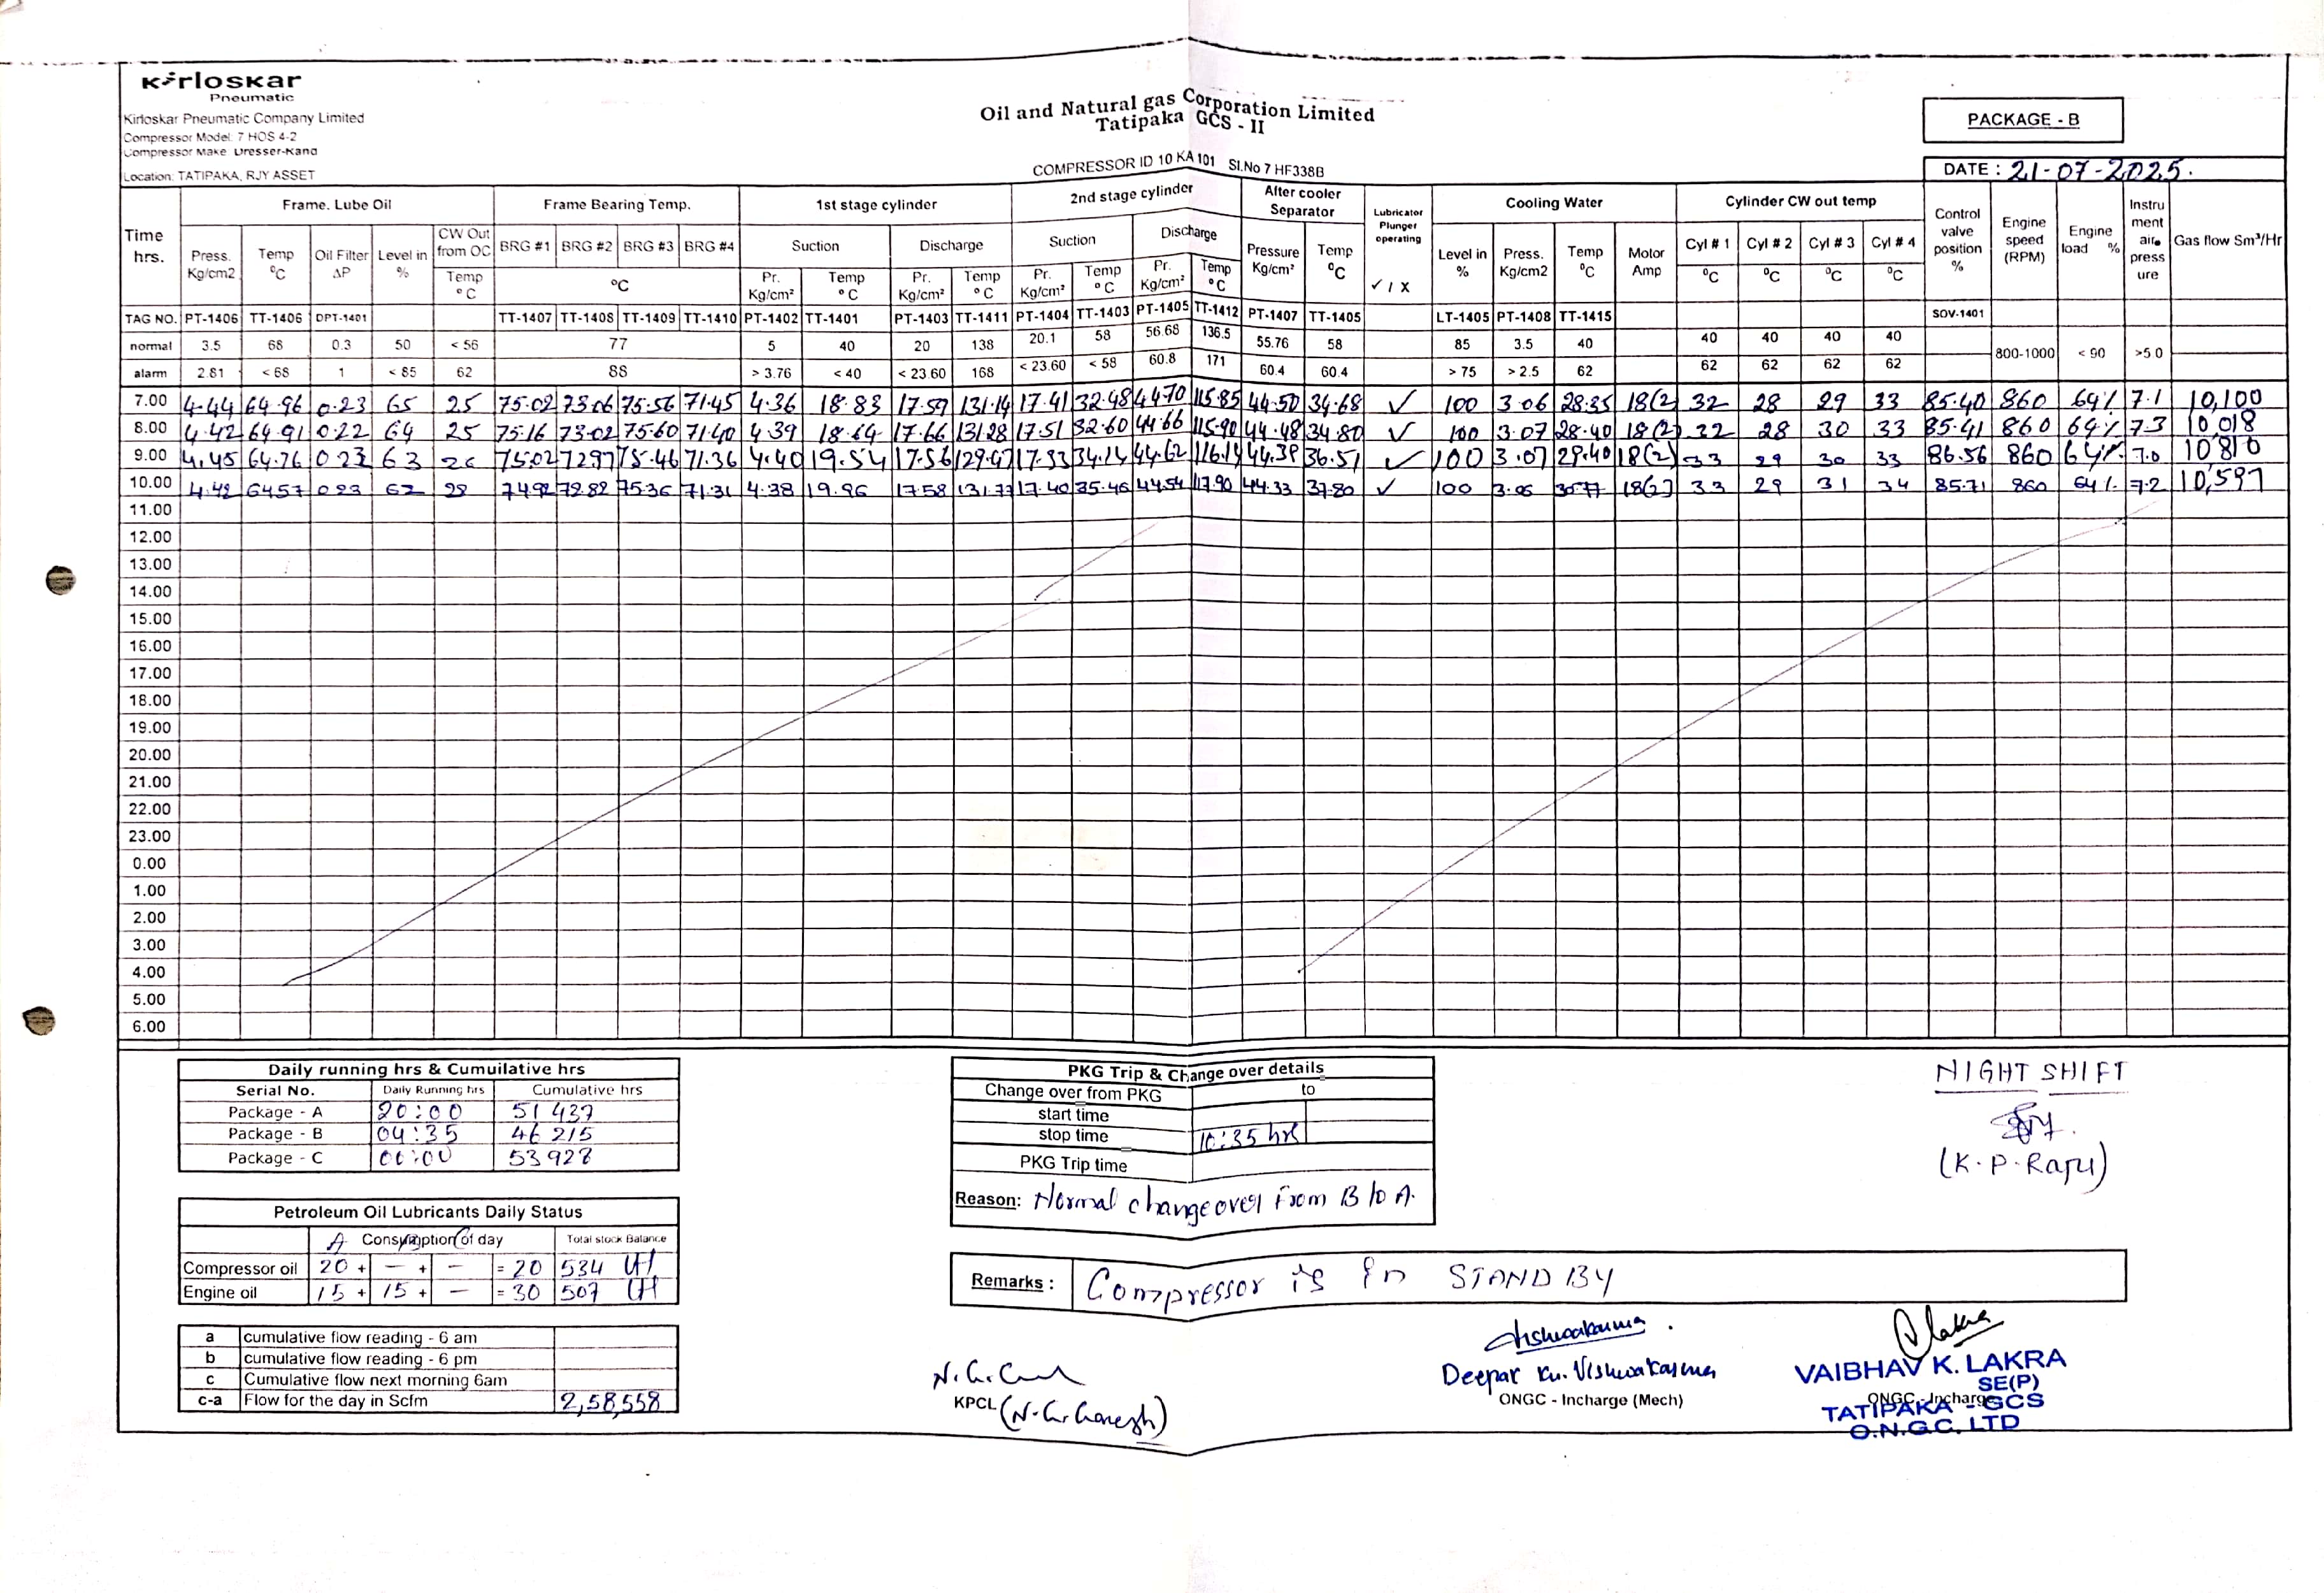 Kirloskar
Pneumatic
Kirloskar Pneumatic Company Limited
Compressor Model: 7 HOS 4-2
Compressor Make: Dresser-Rand
Location: TATIPAKA, RJY ASSET
Oil and Natural gas Corporation Limited
Tatipaka GCS - II
COMPRESSOR ID 10 KA 101 Sl.No 7 HF338B
PACKAGE - B
DATE : 21-07-2025.
Time hrs. Frame. Lube Oil Frame Bearing Temp. 1st stage cylinder 2nd stage cylinder After cooler Separator Lubricator Plunger operating Cooling Water Cylinder CW out temp Control valve position % Engine speed (RPM) Engine load % Instru ment air press ure Gas flow Sm³/Hr
Press. Kg/cm2 Temp ⁰C Oil Filter ΔP Level in % CW Out from OC Temp ° C BRG #1 BRG #2 BRG #3 BRG #4 ⁰C Suction Discharge Suction Discharge Pressure Kg/cm² Temp ⁰C ✓ / X Level in % Press. Kg/cm2 Temp ⁰C Motor Amp Cyl # 1 Cyl # 2 Cyl # 3 Cyl # 4
Pr. Kg/cm² Temp ° C Pr. Kg/cm² Temp ° C Pr. Kg/cm² Temp ° C Pr. Kg/cm² Temp ° C ⁰C ⁰C ⁰C ⁰C
TAG NO. PT-1406 TT-1406 DPT-1401 TT-1407 TT-1408 TT-1409 TT-1410 PT-1402 TT-1401 PT-1403 TT-1411 PT-1404 TT-1403 PT-1405 TT-1412 PT-1407 TT-1405 LT-1405 PT-1408 TT-1415 SOV-1401
normal 3.5 68 0.3 50 < 56 77 5 40 20 138 20.1 58 56.68 136.5 55.76 58 85 3.5 40 40 40 40 40 800-1000 < 90 >5.0
alarm 2.81 < 68 1 < 85 62 88 > 3.76 < 40 < 23.60 168 < 23.60 < 58 60.8 171 60.4 60.4 > 75 > 2.5 62 62 62 62 62
7.00 4.44 64.96 0.23 65 25 75.02 73.06 75.56 71.45 4.36 18.83 17.59 131.14 17.41 32.48 44.70 115.85 44.50 34.68 ✓ 100 3.06 28.35 18(2) 32 28 29 33 85.40 860 64% 7.1 10,100
8.00 4.42 64.91 0.22 64 25 75.16 73.02 75.60 71.40 4.39 18.64 17.66 131.28 17.51 32.60 44.66 115.90 44.48 34.80 ✓ 100 3.07 28.40 18(2) 32 28 30 33 85.41 860 64% 7.3 10,018
9.00 4.45 64.76 0.23 63 26 75.02 72.97 75.46 71.36 4.40 19.54 17.56 129.47 17.33 34.14 44.62 116.14 44.39 36.51 ✓ 100 3.07 29.40 18(2) 33 29 30 33 86.56 860 64% 7.0 10810
10.00 4.42 64.57 0.23 62 28 74.92 72.82 75.36 71.31 4.38 19.96 17.58 131.73 17.40 35.46 44.54 117.90 44.33 37.80 ✓ 100 3.06 30.77 18(2) 33 29 31 34 85.71 860 64% 7.2 10,597
11.00
12.00
13.00
14.00
15.00
16.00
17.00
18.00
19.00
20.00
21.00
22.00
23.00
0.00
1.00
2.00
3.00
4.00
5.00
6.00
Daily running hrs & Cumuilative hrs
Serial No. Daily Running hrs Cumulative hrs
Package - A 20:00 51437
Package - B 04:35 46215
Package - C 00:00 53928
Petroleum Oil Lubricants Daily Status
A Consumption of day B C Total stock Balance
Compressor oil 20 + — + — = 20 534 Ltr
Engine oil 15 + 15 + — = 30 507 Ltr
a cumulative flow reading - 6 am
b cumulative flow reading - 6 pm
c Cumulative flow next morning 6am
c-a Flow for the day in Scfm 2,58,558
PKG Trip & Change over details
Change over from PKG to
start time
stop time 10:35 hrs
PKG Trip time
Reason: Normal changeover from B to A.
Remarks : Compressor is in STAND BY
NIGHT SHIFT
(K.P.Raju)
KPCL (N.G.Ganesh)
Deepak Ku. Vishwakarma
ONGC - Incharge (Mech)
VAIBHAV K. LAKRA
SE(P)
ONGC - Incharge
TATIPAKA - GCS
O.N.G.C. LTD